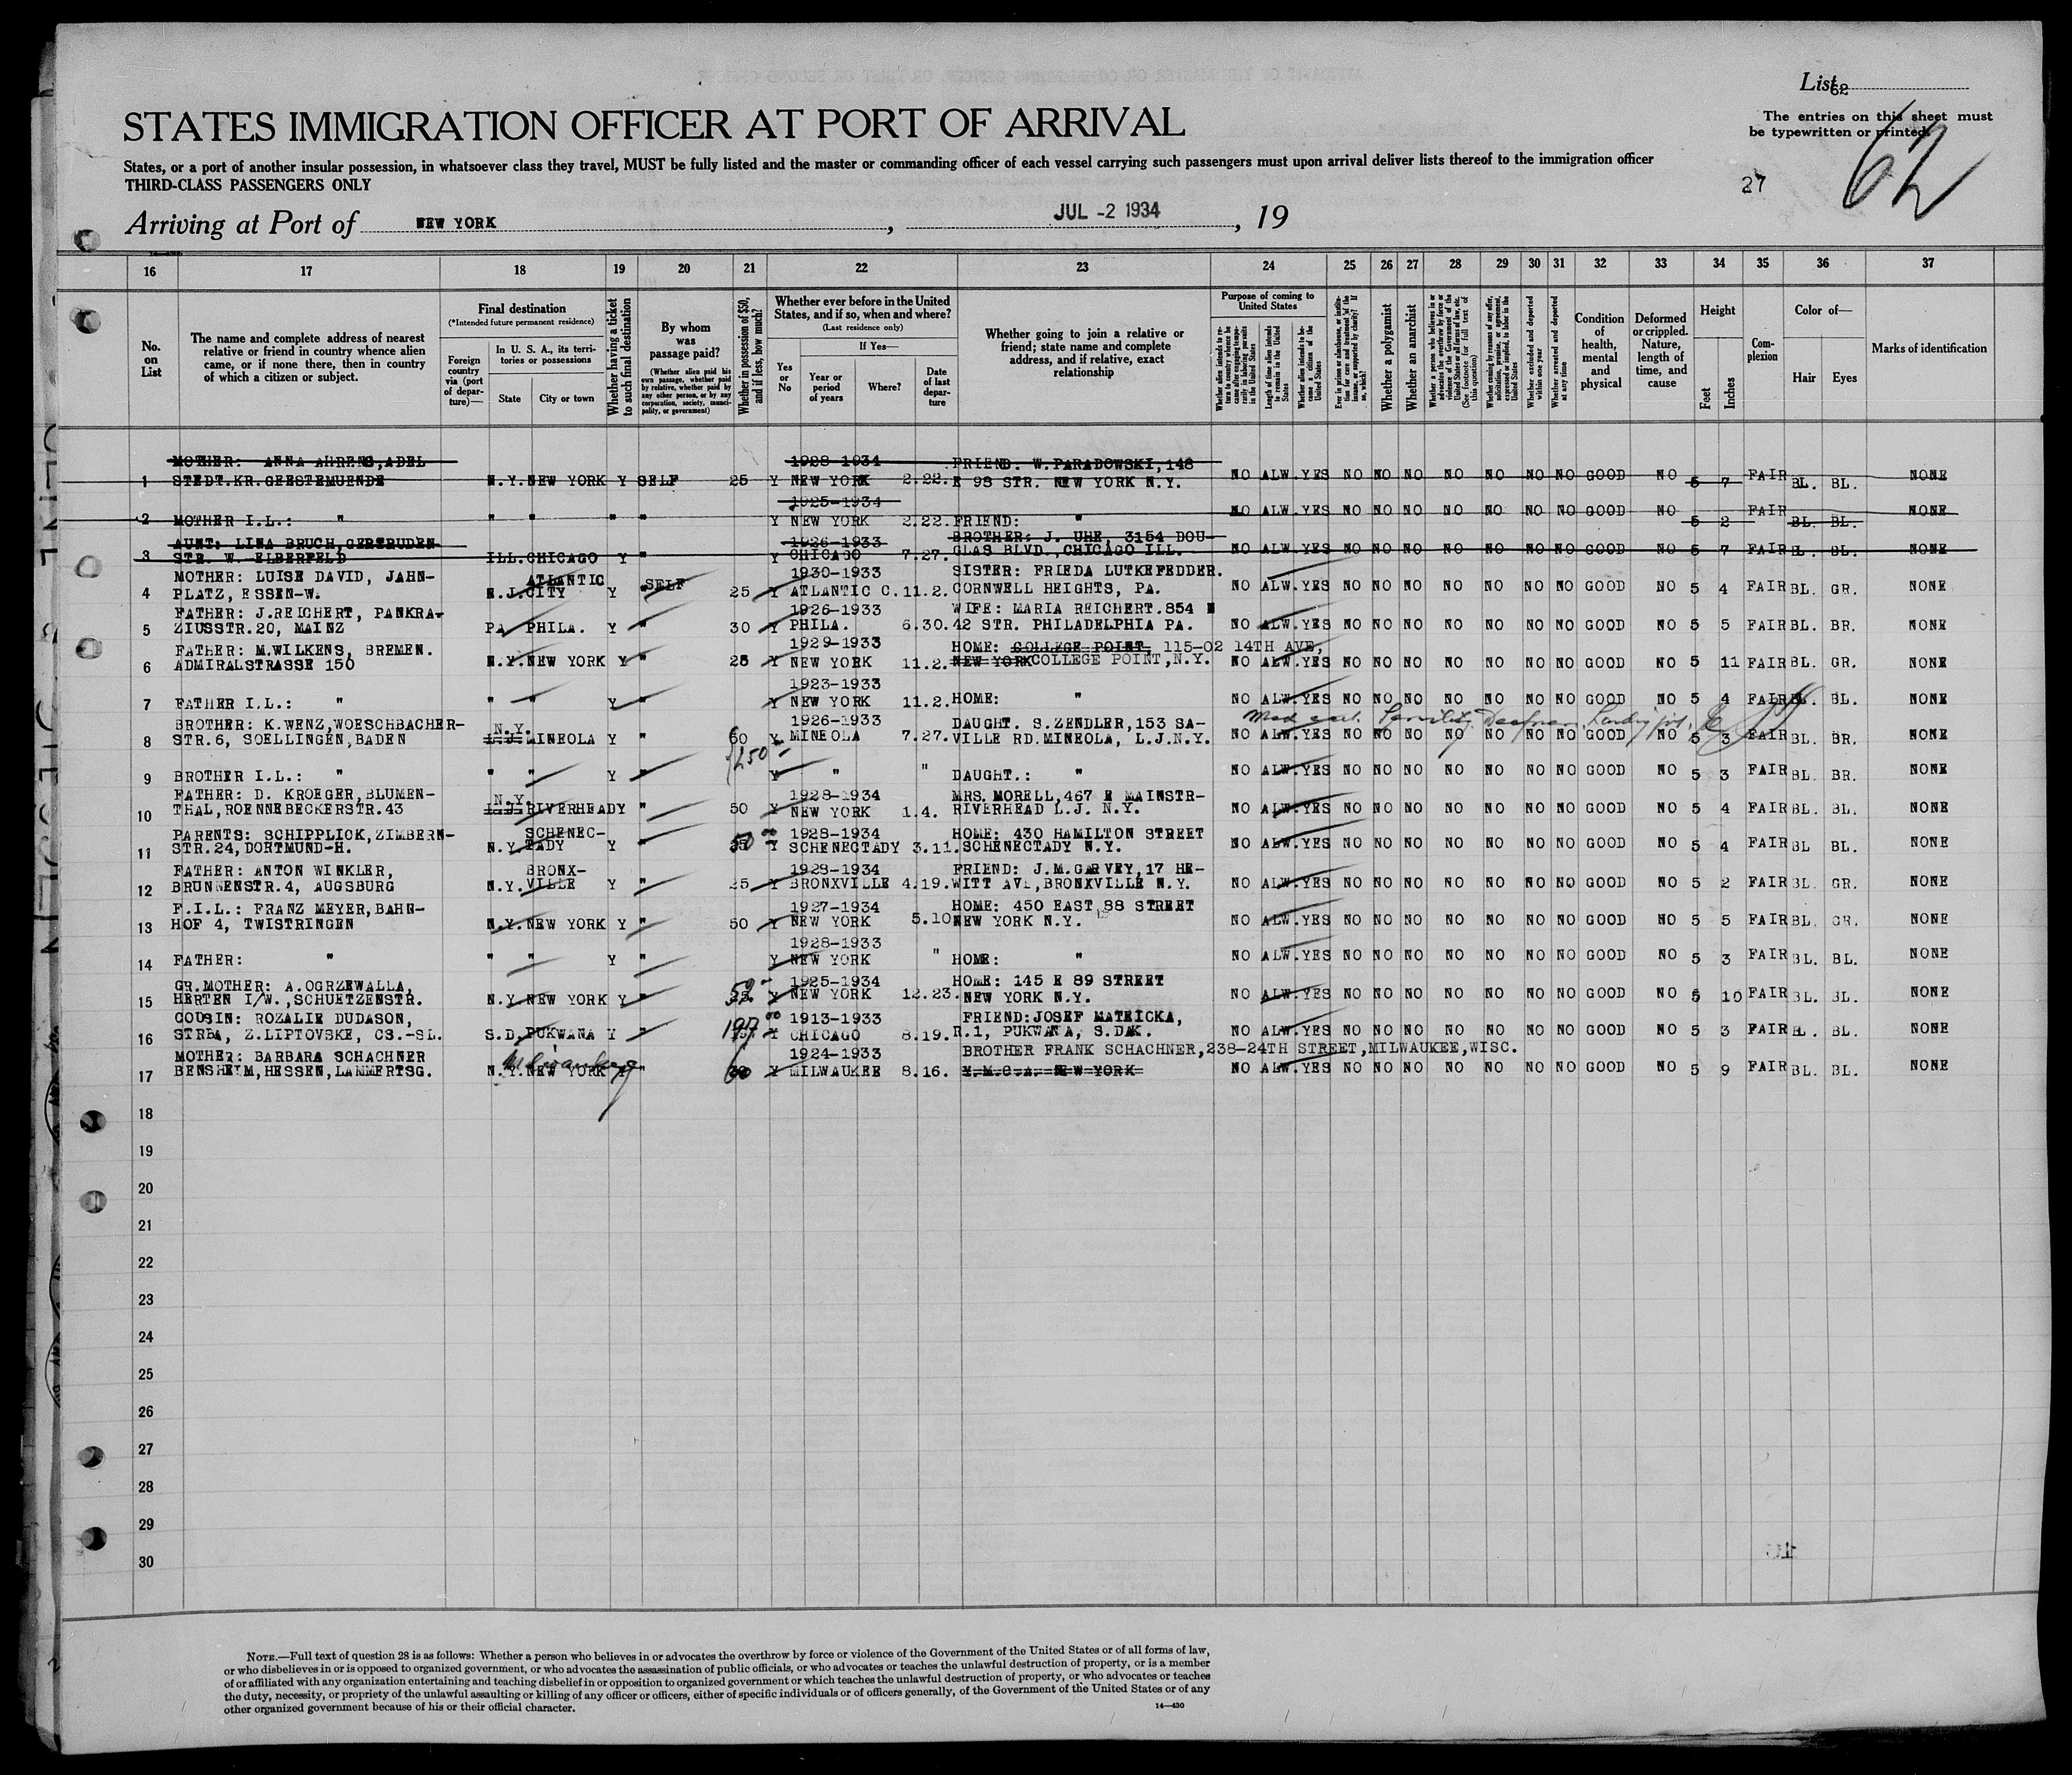 List 62
STATES IMMIGRATION OFFICER AT PORT OF ARRIVAL
The entries on this sheet must
be typewritten or printed.
62
States, or a port of another insular possession, in whatsoever class they travel, MUST be fully listed and the master or commanding officer of each vessel carrying such passengers must upon arrival deliver lists thereof to the immigration officer
THIRD-CLASS PASSENGERS ONLY
27
Arriving at Port of NEW YORK, JUL -2 1934, 19
16 17 18 19 20 21 22 23 24 25 26 27 28 29 30 31 32 33 34 35 36 37
No. on List
The name and complete address of nearest relative or friend in country whence alien came, or if none there, then in country of which a citizen or subject.
Final destination
(*Intended future permanent residence)
Foreign country via (port of departure)—
In U. S. A., its territories or possessions
State
City or town
Whether having a ticket to such final destination
By whom was passage paid?
(Whether alien paid his own passage, whether paid by relative, whether paid by any other person, or by any corporation, society, municipality, or government)
Whether in possession of $50, and if less, how much?
Whether ever before in the United States, and if so, when and where?
(Last residence only)
Yes or No
If Yes—
Year or period of years
Where?
Date of last departure
Whether going to join a relative or friend; state name and complete address, and if relative, exact relationship
Purpose of coming to United States
Whether alien intends to return to country whence he came after engaging temporarily in laboring pursuits in the United States
Length of time alien intends to remain in the United States
Whether alien intends to become a citizen of the United States
Ever in prison or almshouse, or institution for care and treatment of the insane, or supported by charity? If so, which?
Whether a polygamist
Whether an anarchist
Whether a person who believes in or advocates the overthrow by force or violence of the Government of the United States or all forms of law, etc. (See footnote for full text of this question)
Whether coming by reason of any offer, solicitation, promise, or agreement, expressed or implied, to labor in the United States
Whether excluded and deported within one year
Whether arrested and deported at any time
Condition of health, mental and physical
Deformed or crippled. Nature, length of time, and cause
Height
Feet
Inches
Complexion
Color of—
Hair
Eyes
Marks of identification
MOTHER: ANNA AHRENS, ADEL 1928-1934 FRIEND: W.PARADOWSKI, 148
1 STEDT.KR.GEESTEMUENDE N.Y. NEW YORK Y SELF 25 Y NEW YORK 2.22. E 98 STR. NEW YORK N.Y. NO ALW. YES NO NO NO NO NO NO NO GOOD NO 5 7 FAIR BL. BL. NONE
1925-1934
2 MOTHER I.L.: " " " " " Y NEW YORK 2.22. FRIEND: " NO ALW. YES NO NO NO NO NO NO NO GOOD NO 5 2 FAIR BL. BL. NONE
AUNT: LINA BRUCH, GERTRUDEN- 1926-1933 BROTHER: J. UHE, 3154 DOU-
3 STR. W. ELBERFELD ILL. CHICAGO Y " Y CHICAGO 7.27. GLAS BLVD., CHICAGO ILL. NO ALW. YES NO NO NO NO NO NO NO GOOD NO 5 7 FAIR BL. BL. NONE
MOTHER: LUISE DAVID, JAHN- ATLANTIC 1930-1933 SISTER: FRIEDA LUTKEFEDDER.
4 PLATZ, ESSEN-W. N.J. CITY Y SELF 25 Y ATLANTIC C. 11.2. CORNWELL HEIGHTS, PA. NO ALW. YES NO NO NO NO NO NO NO GOOD NO 5 4 FAIR BL. GR. NONE
FATHER: J.REICHERT, PANKRA- 1926-1933 WIFE: MARIA REICHERT. 854 N
5 ZIUSSTR.20, MAINZ PA. PHILA. Y " 30 Y PHILA. 6.30. 42 STR. PHILADELPHIA PA. NO ALW. YES NO NO NO NO NO NO NO GOOD NO 5 5 FAIR BL. BR. NONE
FATHER: M.WILKENS, BREMEN. 1929-1933 HOME: COLLEGE POINT, 115-02 14TH AVE,
6 ADMIRALSTRASSE 150 N.Y. NEW YORK Y " 25 Y NEW YORK 11.2. NEW YORK COLLEGE POINT, N.Y. NO ALW. YES NO NO NO NO NO NO NO GOOD NO 5 11 FAIR BL. GR. NONE
1923-1933
7 FATHER I.L.: " " " Y " Y NEW YORK 11.2. HOME: " NO ALW. YES NO NO NO NO NO NO NO GOOD NO 5 4 FAIR BL. BL. NONE
Med cert. Senility. Deafness
BROTHER: K.WENZ, WOESCHBACHER- N.Y. 1926-1933 DAUGHT. S.ZENDLER, 153 SA-
8 STR.6, SOELLINGEN, BADEN L.J. MINEOLA Y " 60 Y MINEOLA 7.27. VILLE RD. MINEOLA, L.J.N.Y. NO ALW. YES NO NO NO NO NO NO NO GOOD NO 5 3 FAIR BL. BR. NONE
250-
9 BROTHER I.L.: " " " Y " Y " " DAUGHT.: " NO ALW. YES NO NO NO NO NO NO NO GOOD NO 5 3 FAIR BL. BR. NONE
FATHER: D. KROEGER, BLUMEN- N.Y. 1928-1934 MRS. MORELL, 467 E MAINSTR-
10 THAL, ROENNEBECKERSTR.43 L.J. RIVERHEAD Y " 50 Y NEW YORK 1.4. RIVERHEAD L.J. N.Y. NO ALW. YES NO NO NO NO NO NO NO GOOD NO 5 4 FAIR BL. BL. NONE
PARENTS: SCHIPPLICK, ZIMBERN- SCHENEC- 1928-1934 HOME: 430 HAMILTON STREET
11 STR.24, DORTMUND-H. N.Y. TADY Y " 50 Y SCHENECTADY 3.11. SCHENECTADY N.Y. NO ALW. YES NO NO NO NO NO NO NO GOOD NO 5 4 FAIR BL BL. NONE
FATHER: ANTON WINKLER, BRONX- 1928-1934 FRIEND: J.M.GARVEY, 17 HE-
12 BRUNNENSTR.4, AUGSBURG N.Y. VILLE Y " 25 Y BRONXVILLE 4.19. WITT AVE, BRONXVILLE N.Y. NO ALW. YES NO NO NO NO NO NO NO GOOD NO 5 2 FAIR BL. GR. NONE
F.I.L.: FRANZ MEYER, BAHN- 1927-1934 HOME: 450 EAST 88 STREET
13 HOF 4, TWISTRINGEN N.Y. NEW YORK Y " 50 Y NEW YORK 5.10. NEW YORK N.Y. NO ALW. YES NO NO NO NO NO NO NO GOOD NO 5 5 FAIR BL. GR. NONE
1928-1933
14 FATHER: " " " Y " Y NEW YORK " HOME: " NO ALW. YES NO NO NO NO NO NO NO GOOD NO 5 3 FAIR BL. BL. NONE
GR.MOTHER: A.OGRZEWALLA, 1925-1934 HOME: 145 E 89 STREET
15 HERTEN I/W., SCHUETZENSTR. N.Y. NEW YORK Y " 50- Y NEW YORK 12.23. NEW YORK N.Y. NO ALW. YES NO NO NO NO NO NO NO GOOD NO 5 10 FAIR BL. BL. NONE
COUSIN: ROZALIE DUDASON, 1913-1933 FRIEND: JOSEF MATEICKA,
16 STRBA, Z.LIPTOVSKE, CS.-SL. S.D. PUKWANA Y " Y CHICAGO 8.19. R.1, PUKWANA, S.DAK. NO ALW. YES NO NO NO NO NO NO NO GOOD NO 5 3 FAIR BL. BL. NONE
MOTHER: BARBARA SCHACHNER Milwaukee 1924-1933 BROTHER FRANK SCHACHNER, 238-24TH STREET, MILWAUKEE, WISC.
17 BENSHEIM, HESSEN, LAMMERTSG. N.Y. NEW YORK Y " 60 Y MILWAUKEE 8.16. Y.M.C.A. NEW YORK NO ALW. YES NO NO NO NO NO NO NO GOOD NO 5 9 FAIR BL. BL. NONE
18
19
20
21
22
23
24
25
26
27
28
29
30
NOTE.—Full text of question 28 is as follows: Whether a person who believes in or advocates the overthrow by force or violence of the Government of the United States or of all forms of law,
or who disbelieves in or is opposed to organized government, or who advocates the assassination of public officials, or who advocates or teaches the unlawful destruction of property, or is a member
of or affiliated with any organization entertaining and teaching disbelief in or opposition to organized government or which teaches the unlawful destruction of property, or who advocates or teaches
the duty, necessity, or propriety of the unlawful assaulting or killing of any officer or officers, either of specific individuals or of officers generally, of the Government of the United States or of any
other organized government because of his or their official character.
14—430